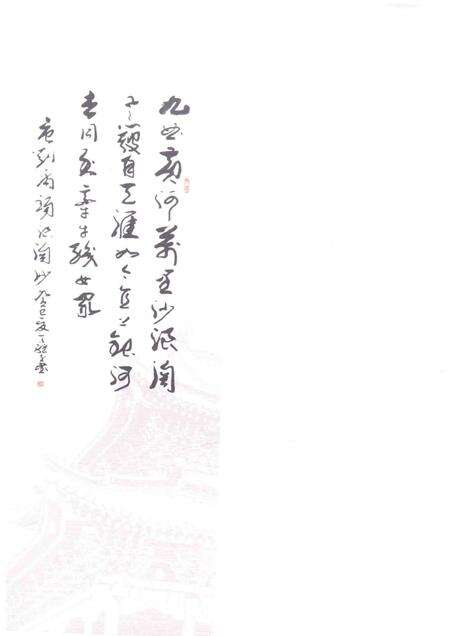 九曲黄河萬里沙浪淘
風簸自天涯如今直上銀河
去同到牽牛織女家
唐劉禹錫詩浪淘沙癸巳夏